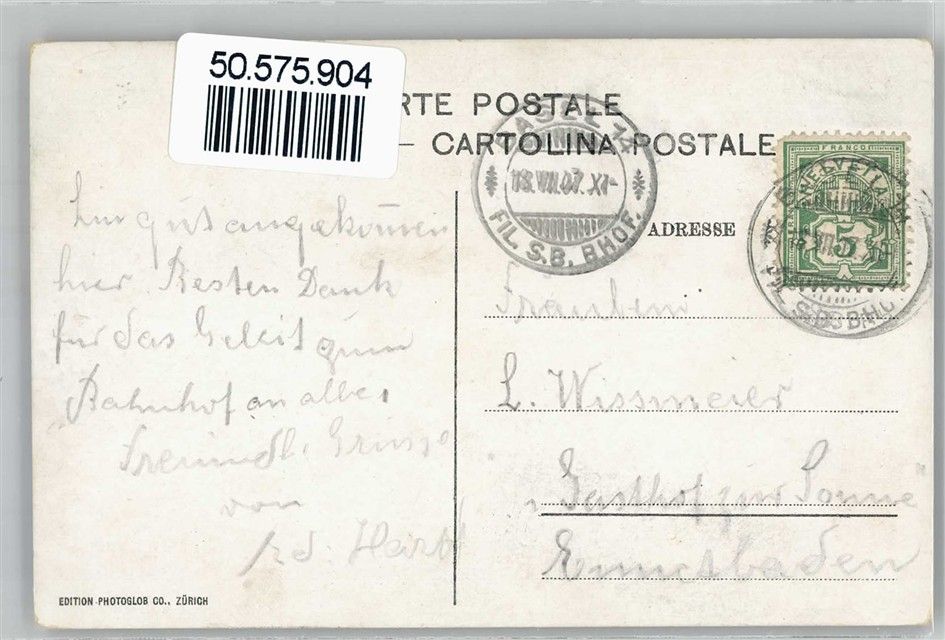 50.575.904
RTE POSTALE
– CARTOLINA POSTALE
BASEL
13.VII.07.XI–
FIL. S.B. BHOF.
FRANCO
HELVETIA
5
ADRESSE
gut angekommen
hier Besten Dank
für das Geleit zum
Bahnhof an alle
Freundl. Grüsse
von
Fräulein
L. Wissmeier
"Gasthof zur Sonne"
Ennetbaden
EDITION PHOTOGLOB CO., ZÜRICH